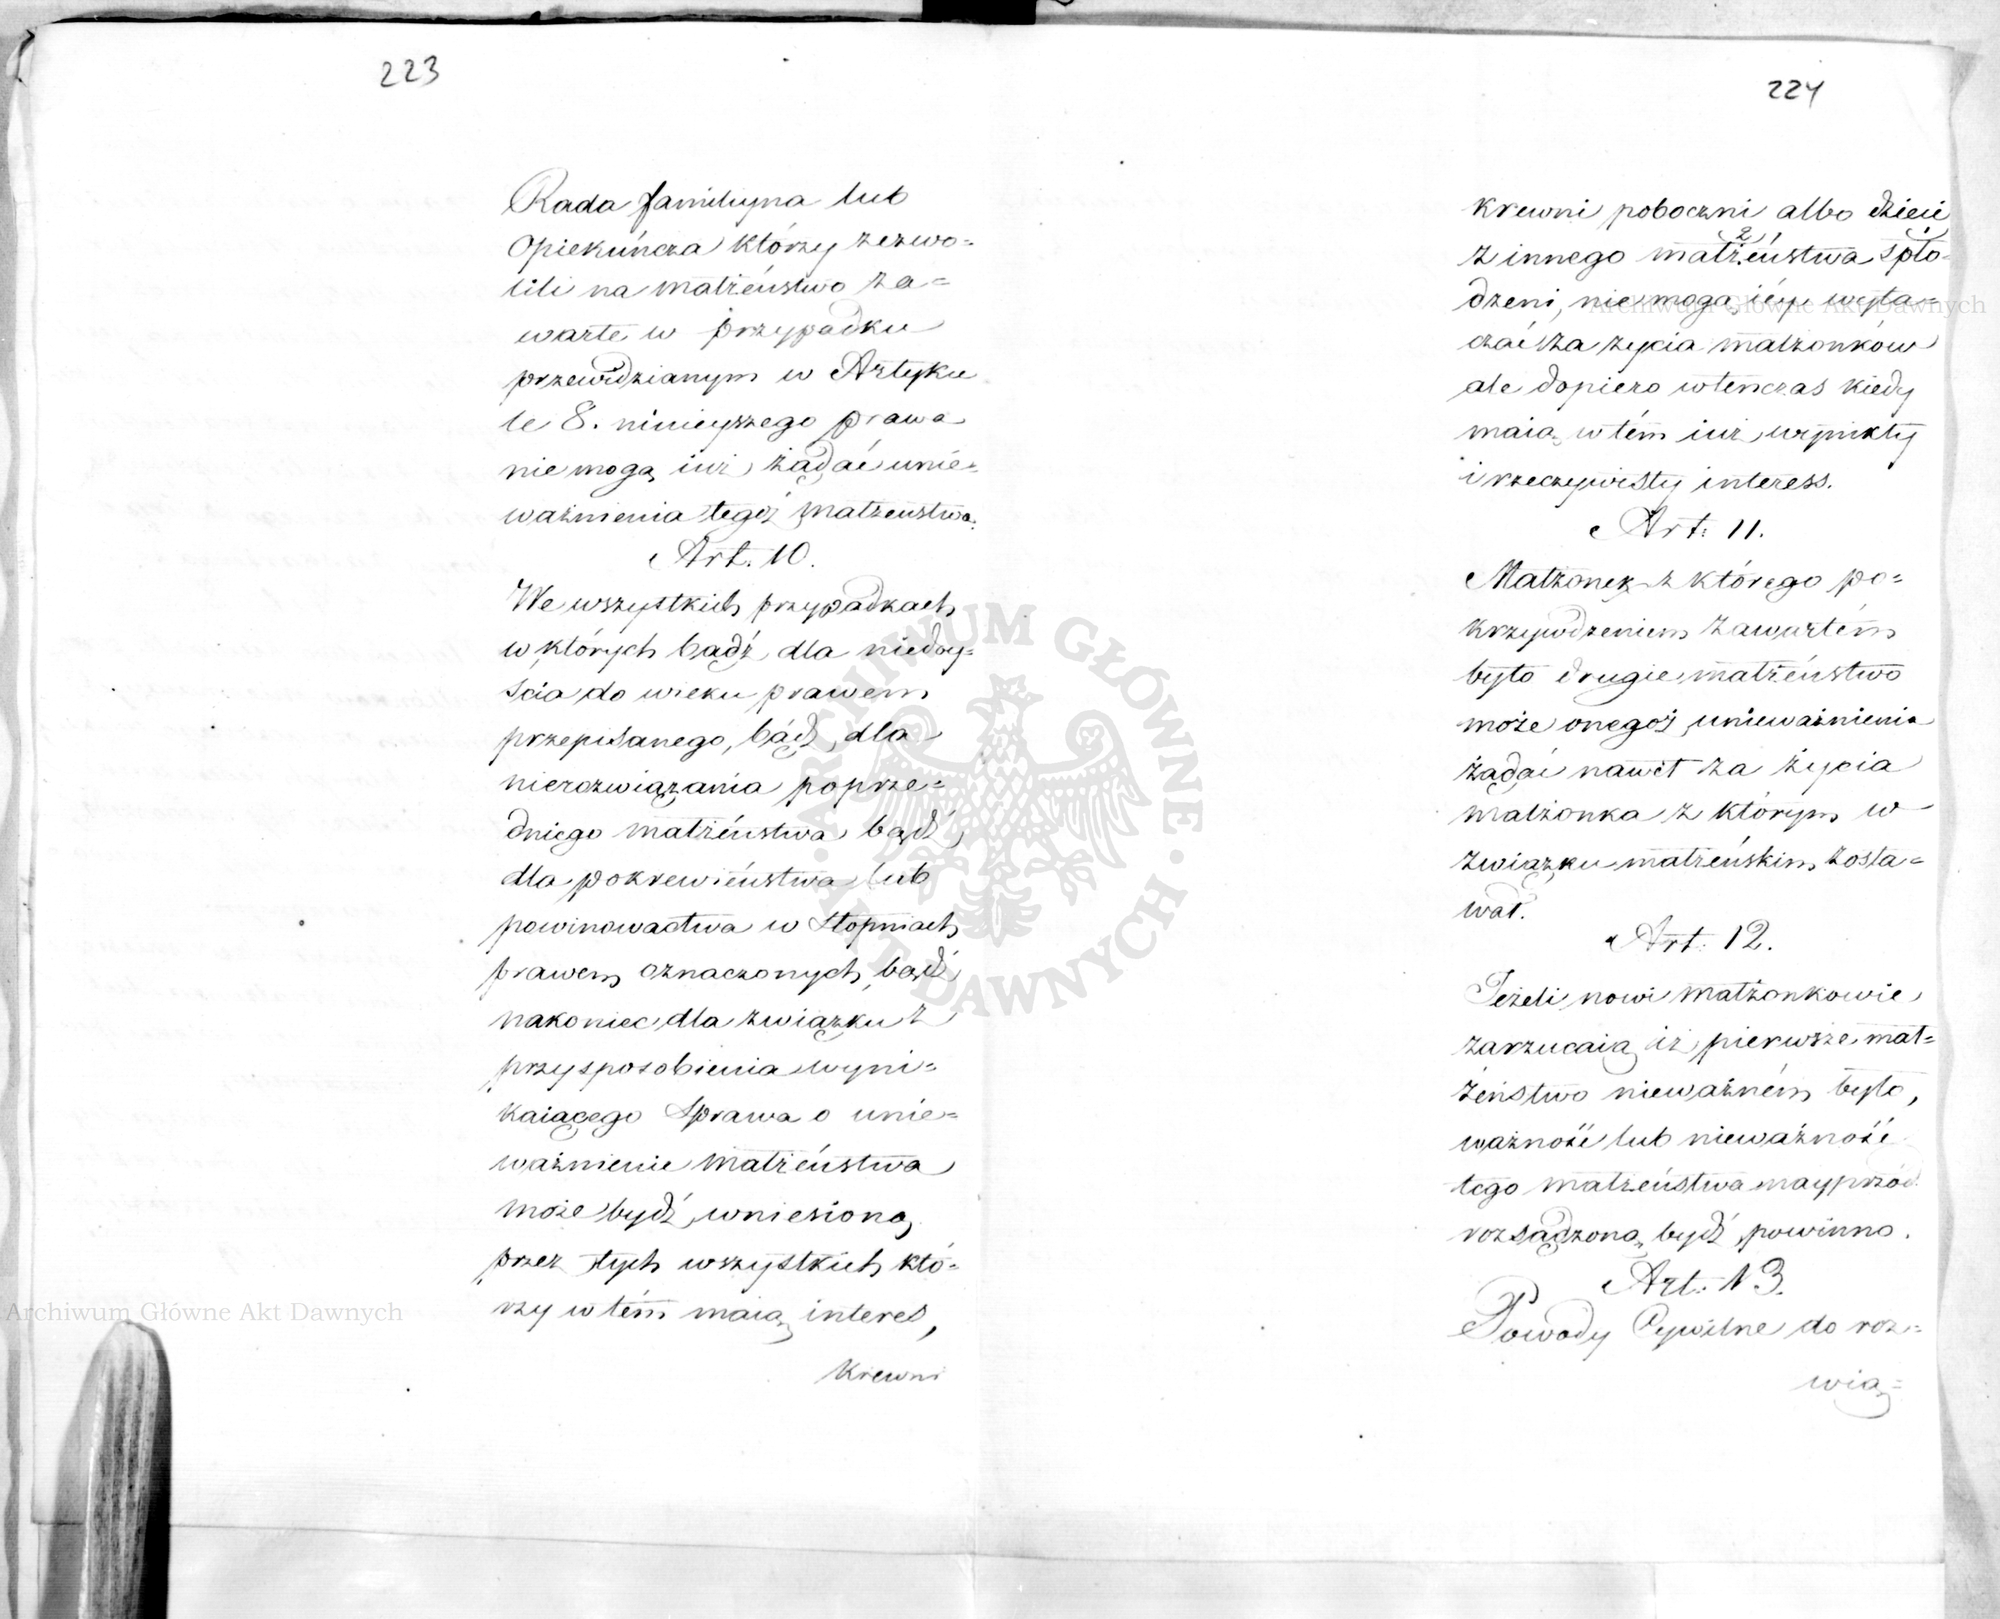 223
Rada familiyna lub
Opiekuńcza którzy zezwo=
lili na małżeństwo za=
warte w przypadku
przewidzianym w Artyku
le 8. ninieyszego prawa
nie mogą iuż żądać unie=
ważnienia tegoż małżeństwa.
Art. 10.
We wszystkich przypadkach
w których bądź dla niedoy=
ścia do wieku prawem
przepisanego, bądź dla
nierozwiązania poprze=
dniego małżeństwa bądź
dla pokrewieństwa lub
powinowactwa w stopniach
prawem oznaczonych, bądź
nakoniec dla związku z
przysposobienia wyni=
kaiącego sprawa o unie=
ważnienie małżeństwa
może bydź wniesioną
przez tych wszystkich któ=
rzy w tém maią interes,
Krewni
224
krewni poboczni albo dzieci
z innego małżeństwa spło=
dzeni, nie mogą iéy wyta=
czać za życia małżonków
ale dopiero wtenczas kiedy
maią w tém iuż wynikły
i rzeczywisty interess.
Art: 11.
Małżonek z którego po=
krzywdzeniem zawartém
było drugie małżeństwo
może onegoż unieważnienia
żądać nawet za życia
małżonka z którym w
związku małżeńskim zosta=
wał.
Art: 12.
Jeżeli nowi małżonkowie
zarzucaią iż pierwsze mał=
żeństwo nieważném było,
ważność lub nieważność
tego małżeństwa nayprzód
rozsądzoną bydź powinno.
Art: 13.
Powody Cywilne do roz=
wią=
Archiwum Główne Akt Dawnych
Archiwum Główne Akt Dawnych
ARCHIWUM GŁÓWNE · AKT DAWNYCH ·